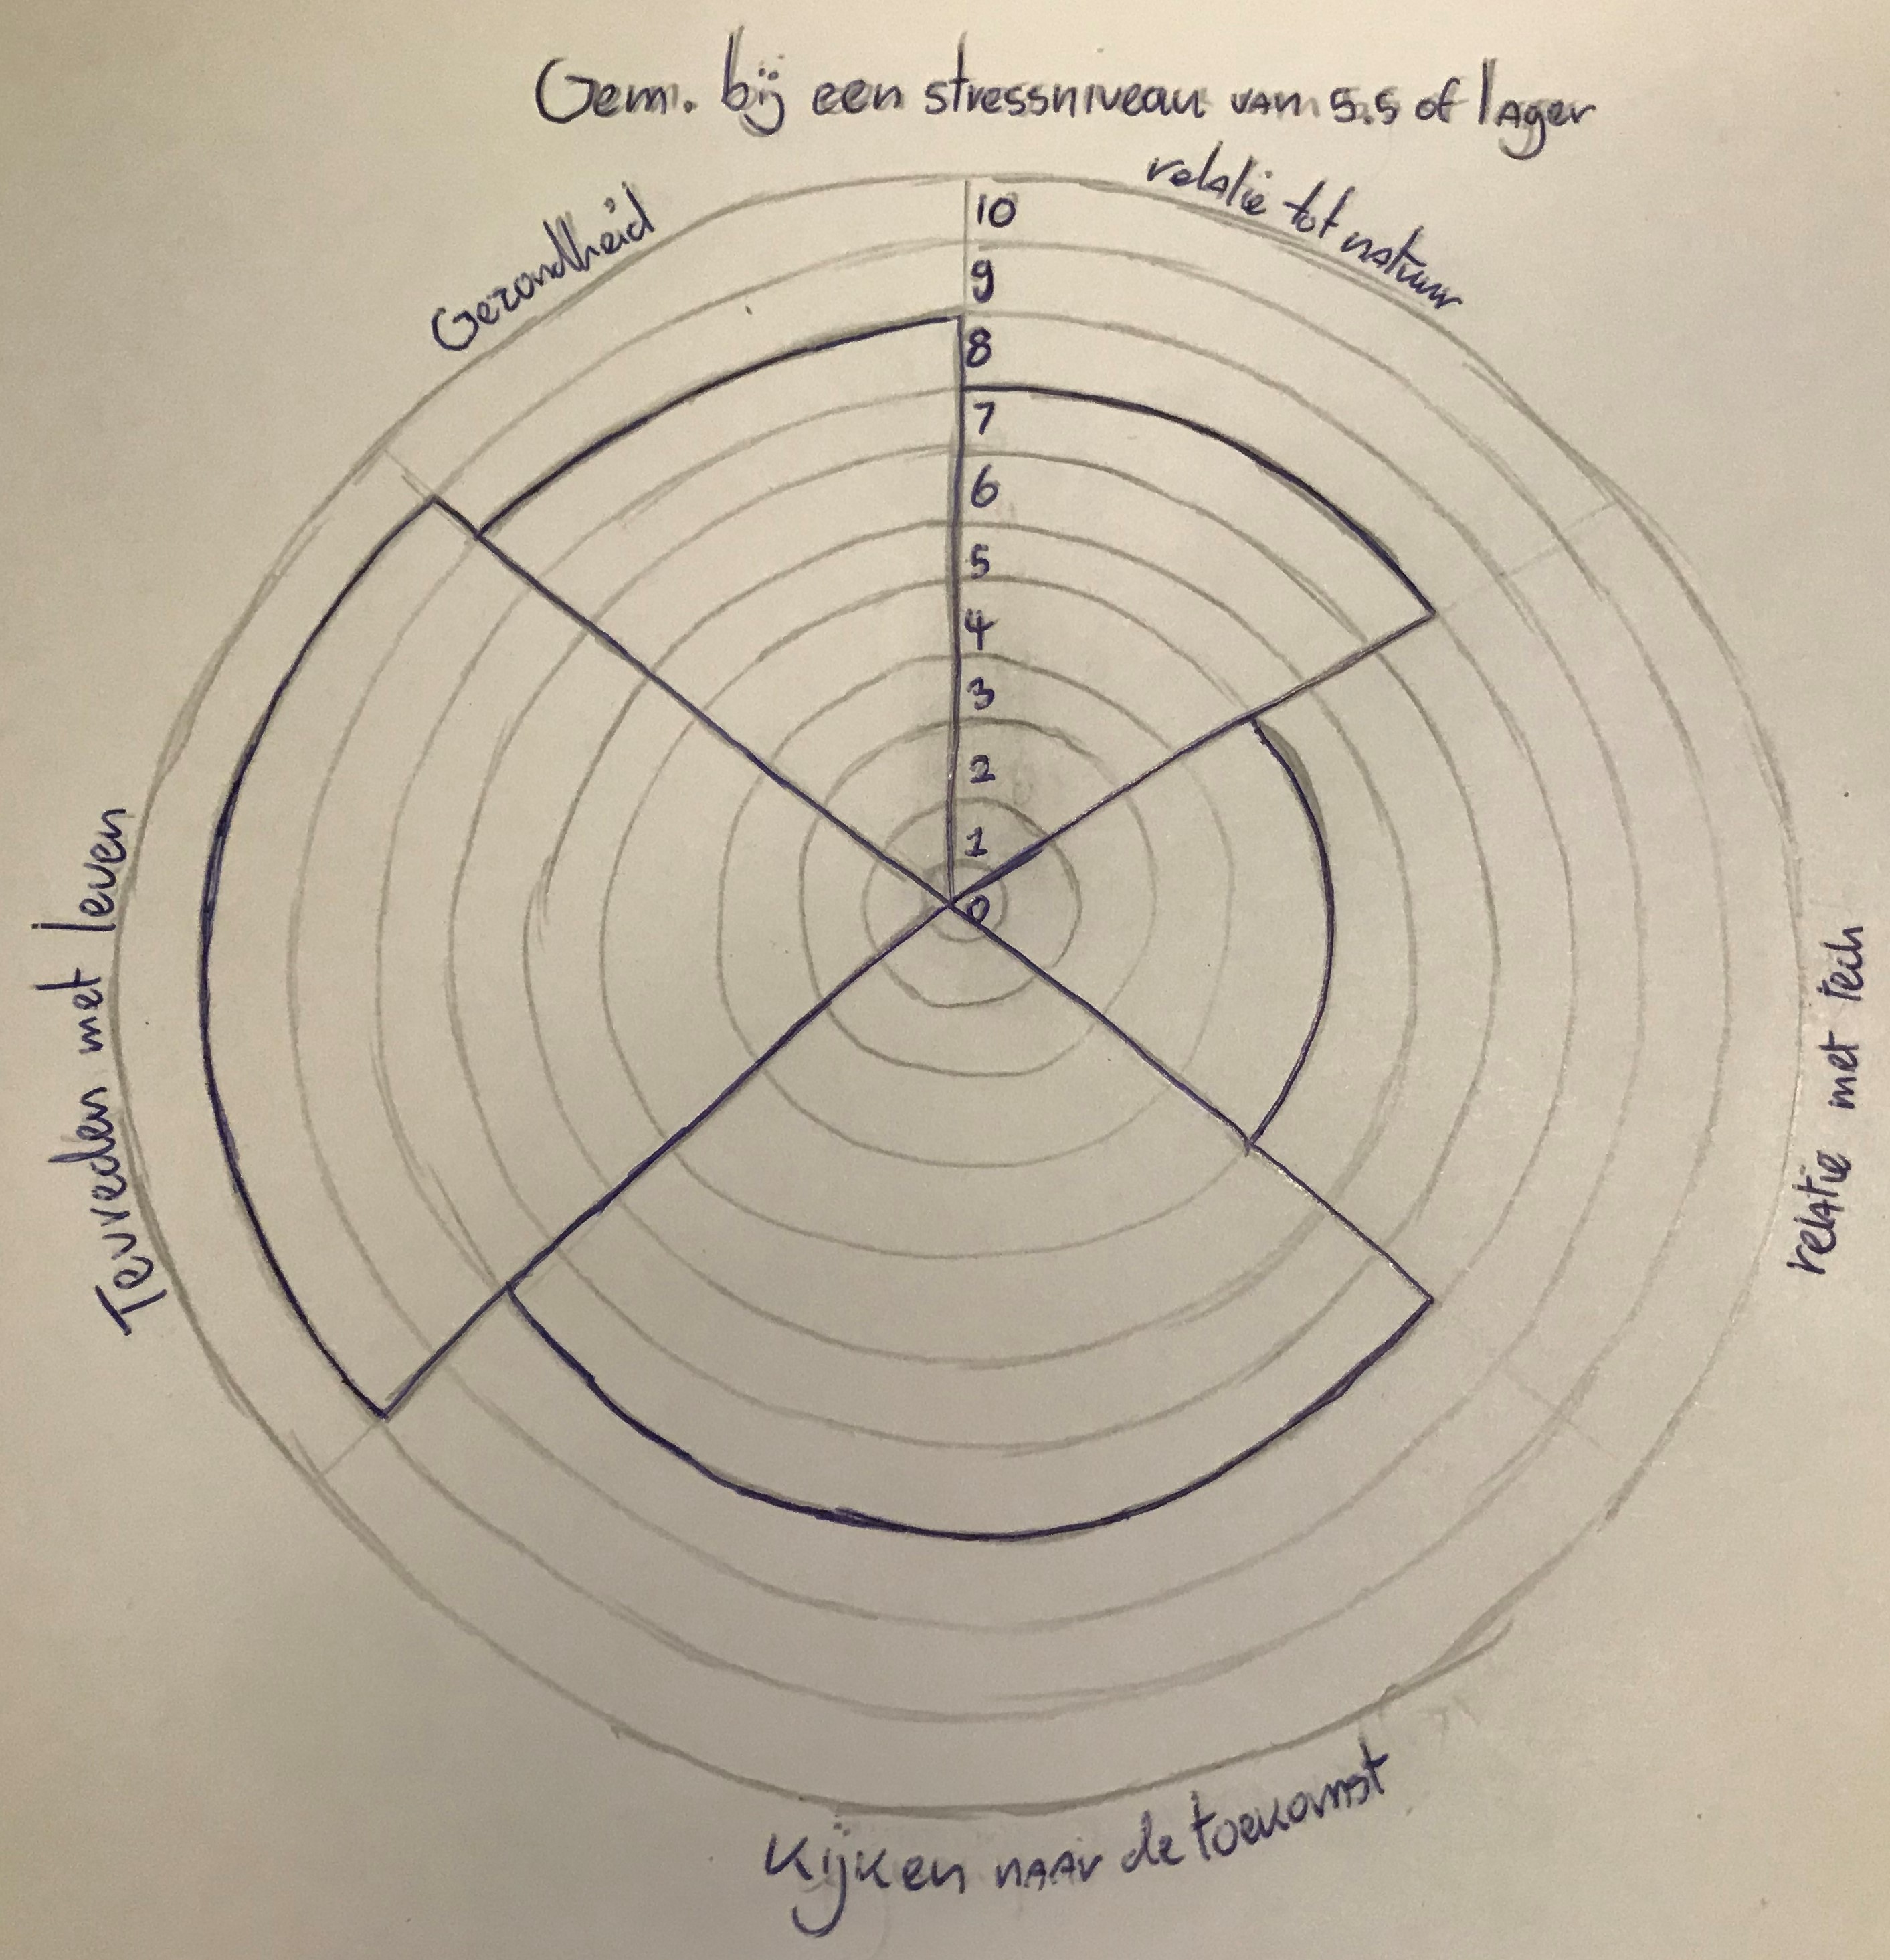 Gem. bij een stressniveau van 5.5 of lager
Gezondheid
relatie tot natuur
10
9
8
7
6
5
4
3
2
1
0
Tevreden met leven
relatie met tech
Kijken naar de toekomst